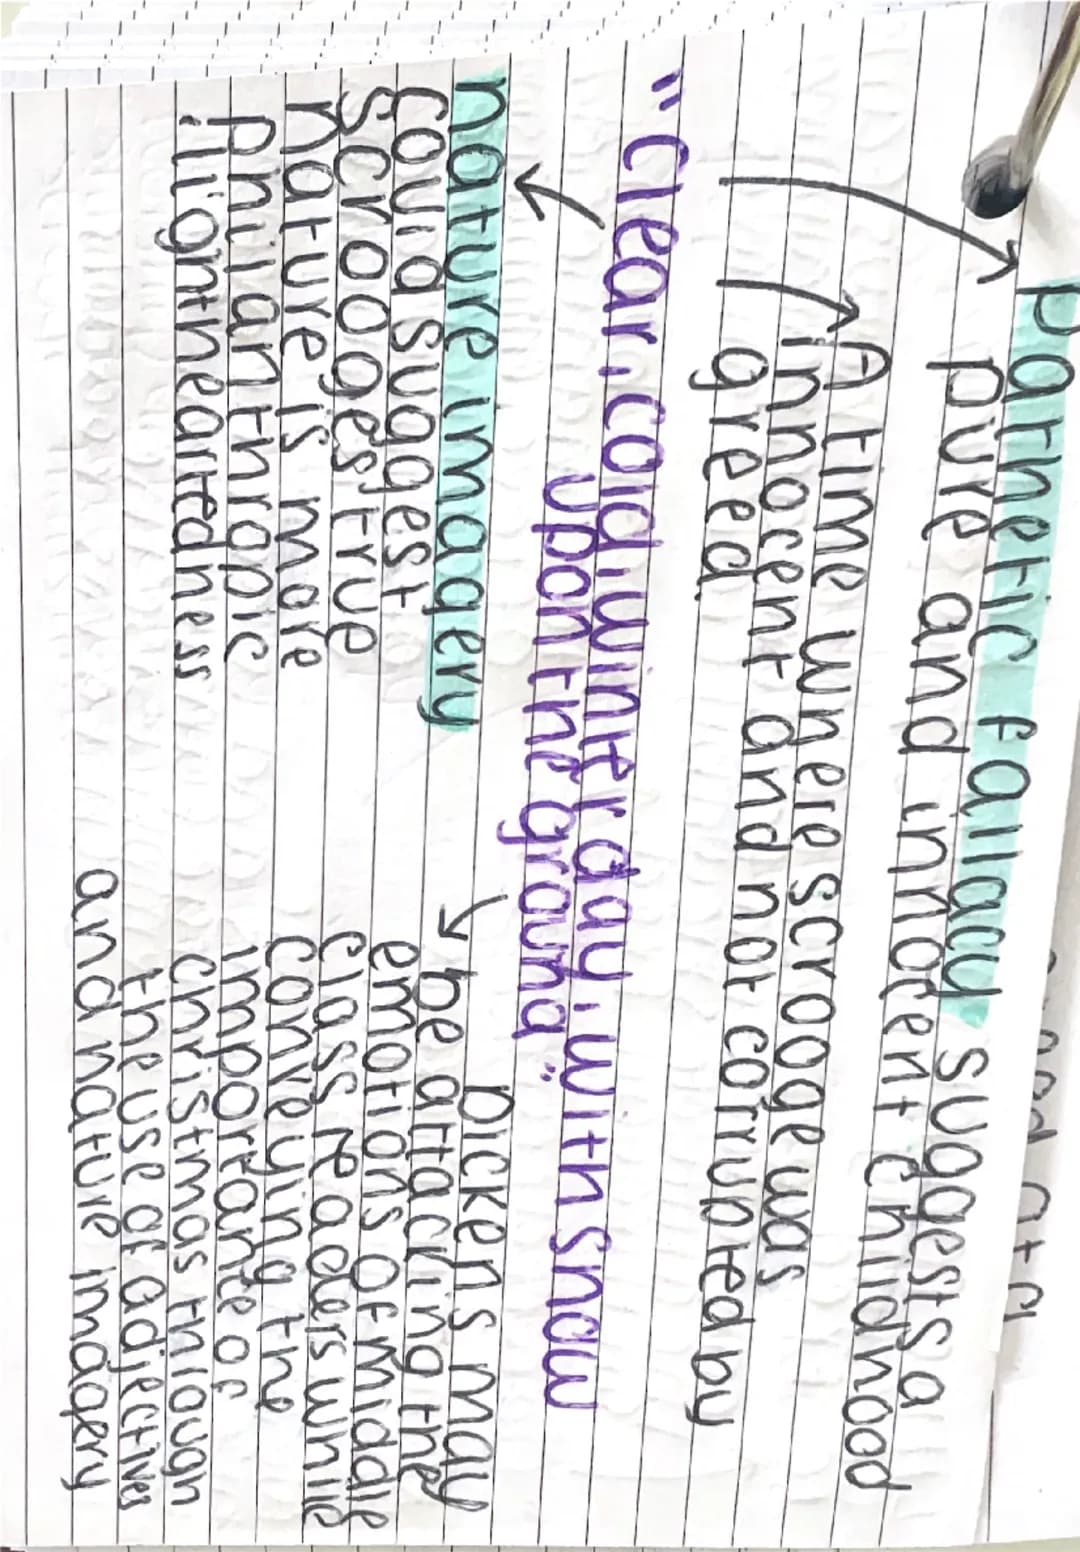 pathetic fallacy suggests a
pure and innocent childhood
A time where scrooge was
innocent and not corrupted by
greed.
"Clear, cold, winter day, with snow
upon the ground"
nature imagery
could suggest
Scrooges' true
nature is more
Philanthropic
/lightheartedness
Dickens may
be attacking the
emotions of middle
class readers while
conveying the
importance of
christmas through
the use of adjectives
and nature imagery